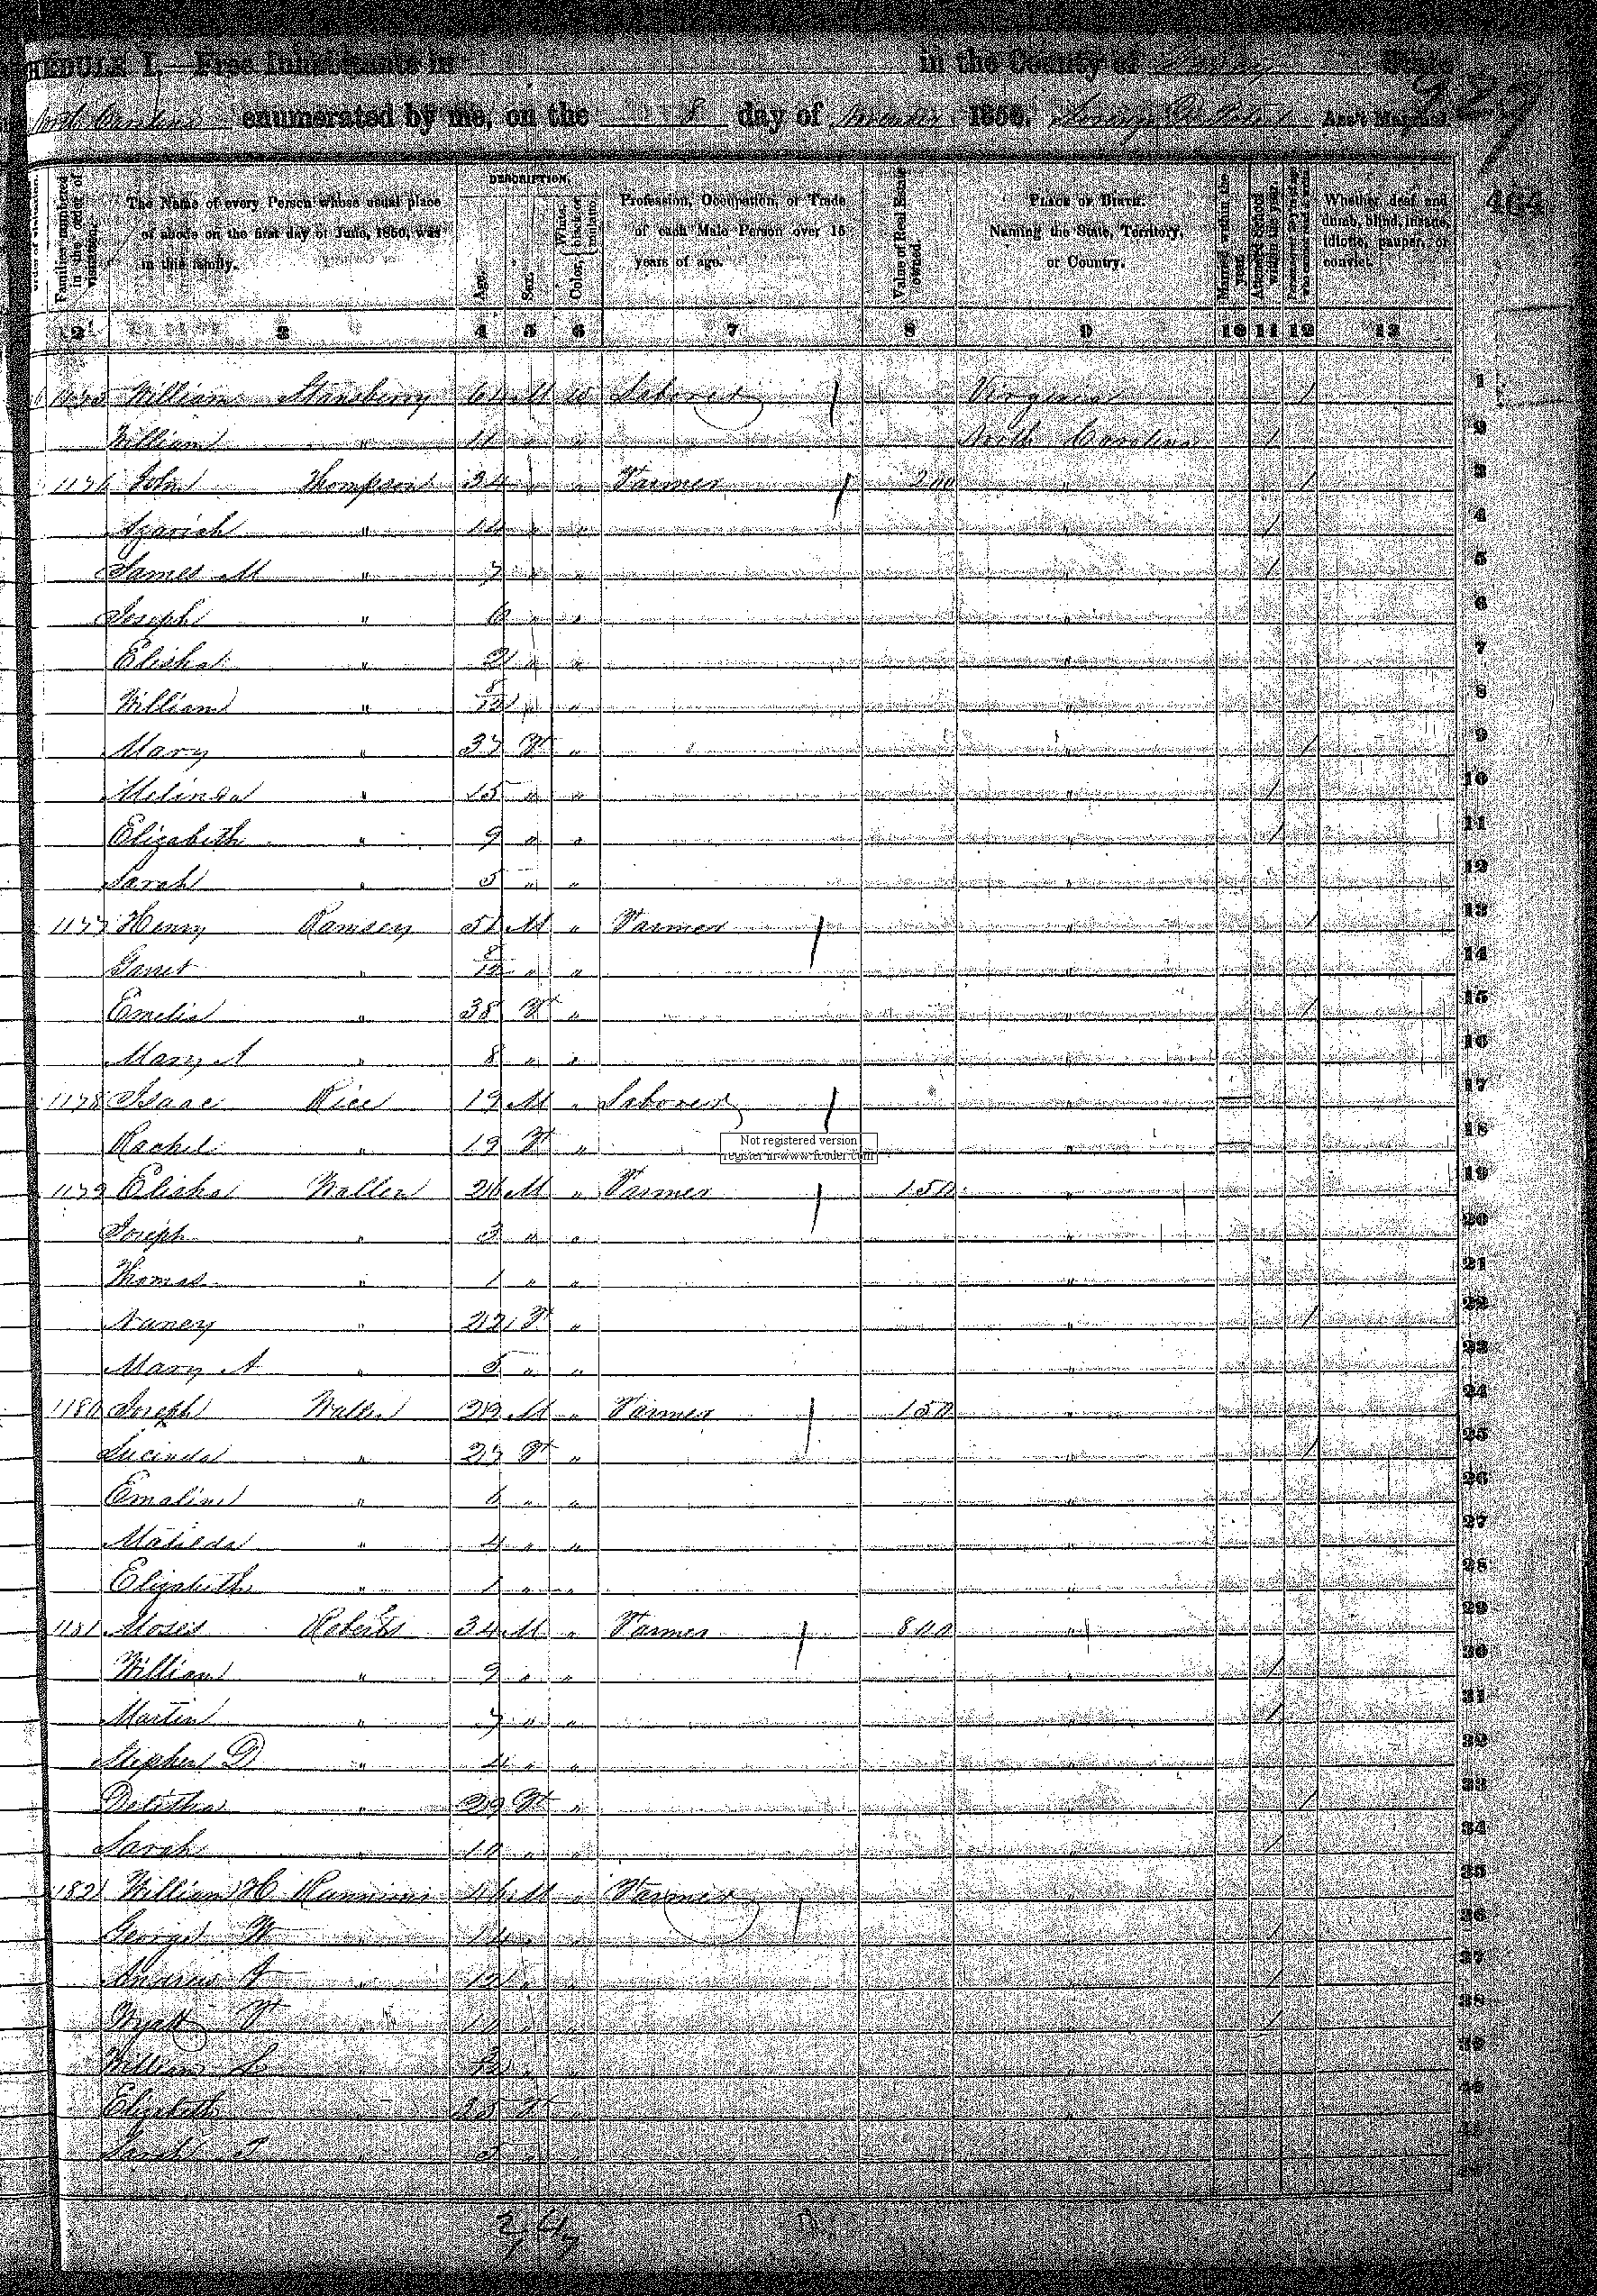 HEDULE I.—Free Inhabitants in in the County of State
North Carolina enumerated by me, on the 8 day of November 1850. Ass't Marshal.
464
Families numbered in the order of visitation.
The Name of every Person whose usual place of abode on the first day of June, 1850, was in this family.
DESCRIPTION.
Age.
Sex.
Color, { White, black, or mulatto.
Profession, Occupation, or Trade of each Male Person over 15 years of age.
Value of Real Estate owned.
PLACE OF BIRTH. Naming the State, Territory, or Country.
Married within the year.
Attended School within the year.
Whether deaf and dumb, blind, insane, idiotic, pauper, or convict.
2 3 4 5 6 7 8 9 10 11 12 13
William Stansberry M W Laborer Virginia / 1
William " 11 " " North Carolina / 2
1176 John Thompson 34 " " Farmer 200 " / 3
Azariah " 14 " " " / 4
James M " 7 " " " / 5
Joseph " 6 " " " 6
Elisha " 2 " " " 7
William " 8/12 " " " 8
Mary " 37 F " " / 9
Melinda " 15 " " " / 10
Elizabeth " 9 " " " / 11
Sarah " 5 " " " 12
1177 Henry Ramsey 51 M " Farmer " / 13
Garret " 8/12 " " " 14
Emelia " 38 F " " / 15
Mary A " 8 " " " 16
1178 Isaac Rice 19 M " Laborer " 17
Rachel " 19 F " " 18
Not registered version
register in www.fcoder.com
1179 Elisha Wallen 26 M " Farmer 150 " 19
Joseph " 3 " " " 20
Thomas " 1 " " " 21
Nancy " 22 F " " / 22
Mary A " 5 " " " 23
1180 Joseph Wallen 29 M " Farmer 150 " 24
Lucinda " 27 F " " / 25
Emaline " 6 " " " 26
Matilda " 4 " " " 27
Elizabeth " 1 " " " 28
1181 Moses Roberts 34 M " Farmer 800 " 29
William " 9 " " " / 30
Martin " 7 " " " / 31
Stephen D " 4 " " " 32
" 29 F " " / 33
Sarah " 10 " " " / 34
1182 William H Runnions 46 M " Farmer " 35
George W " 14 " " " / 36
Andrew J " 12 " " " / 37
Wyatt F " 10 " " " / 38
William L " " " " 39
Elizabeth " F " " 40
Sarah " 5 " " " 41
42